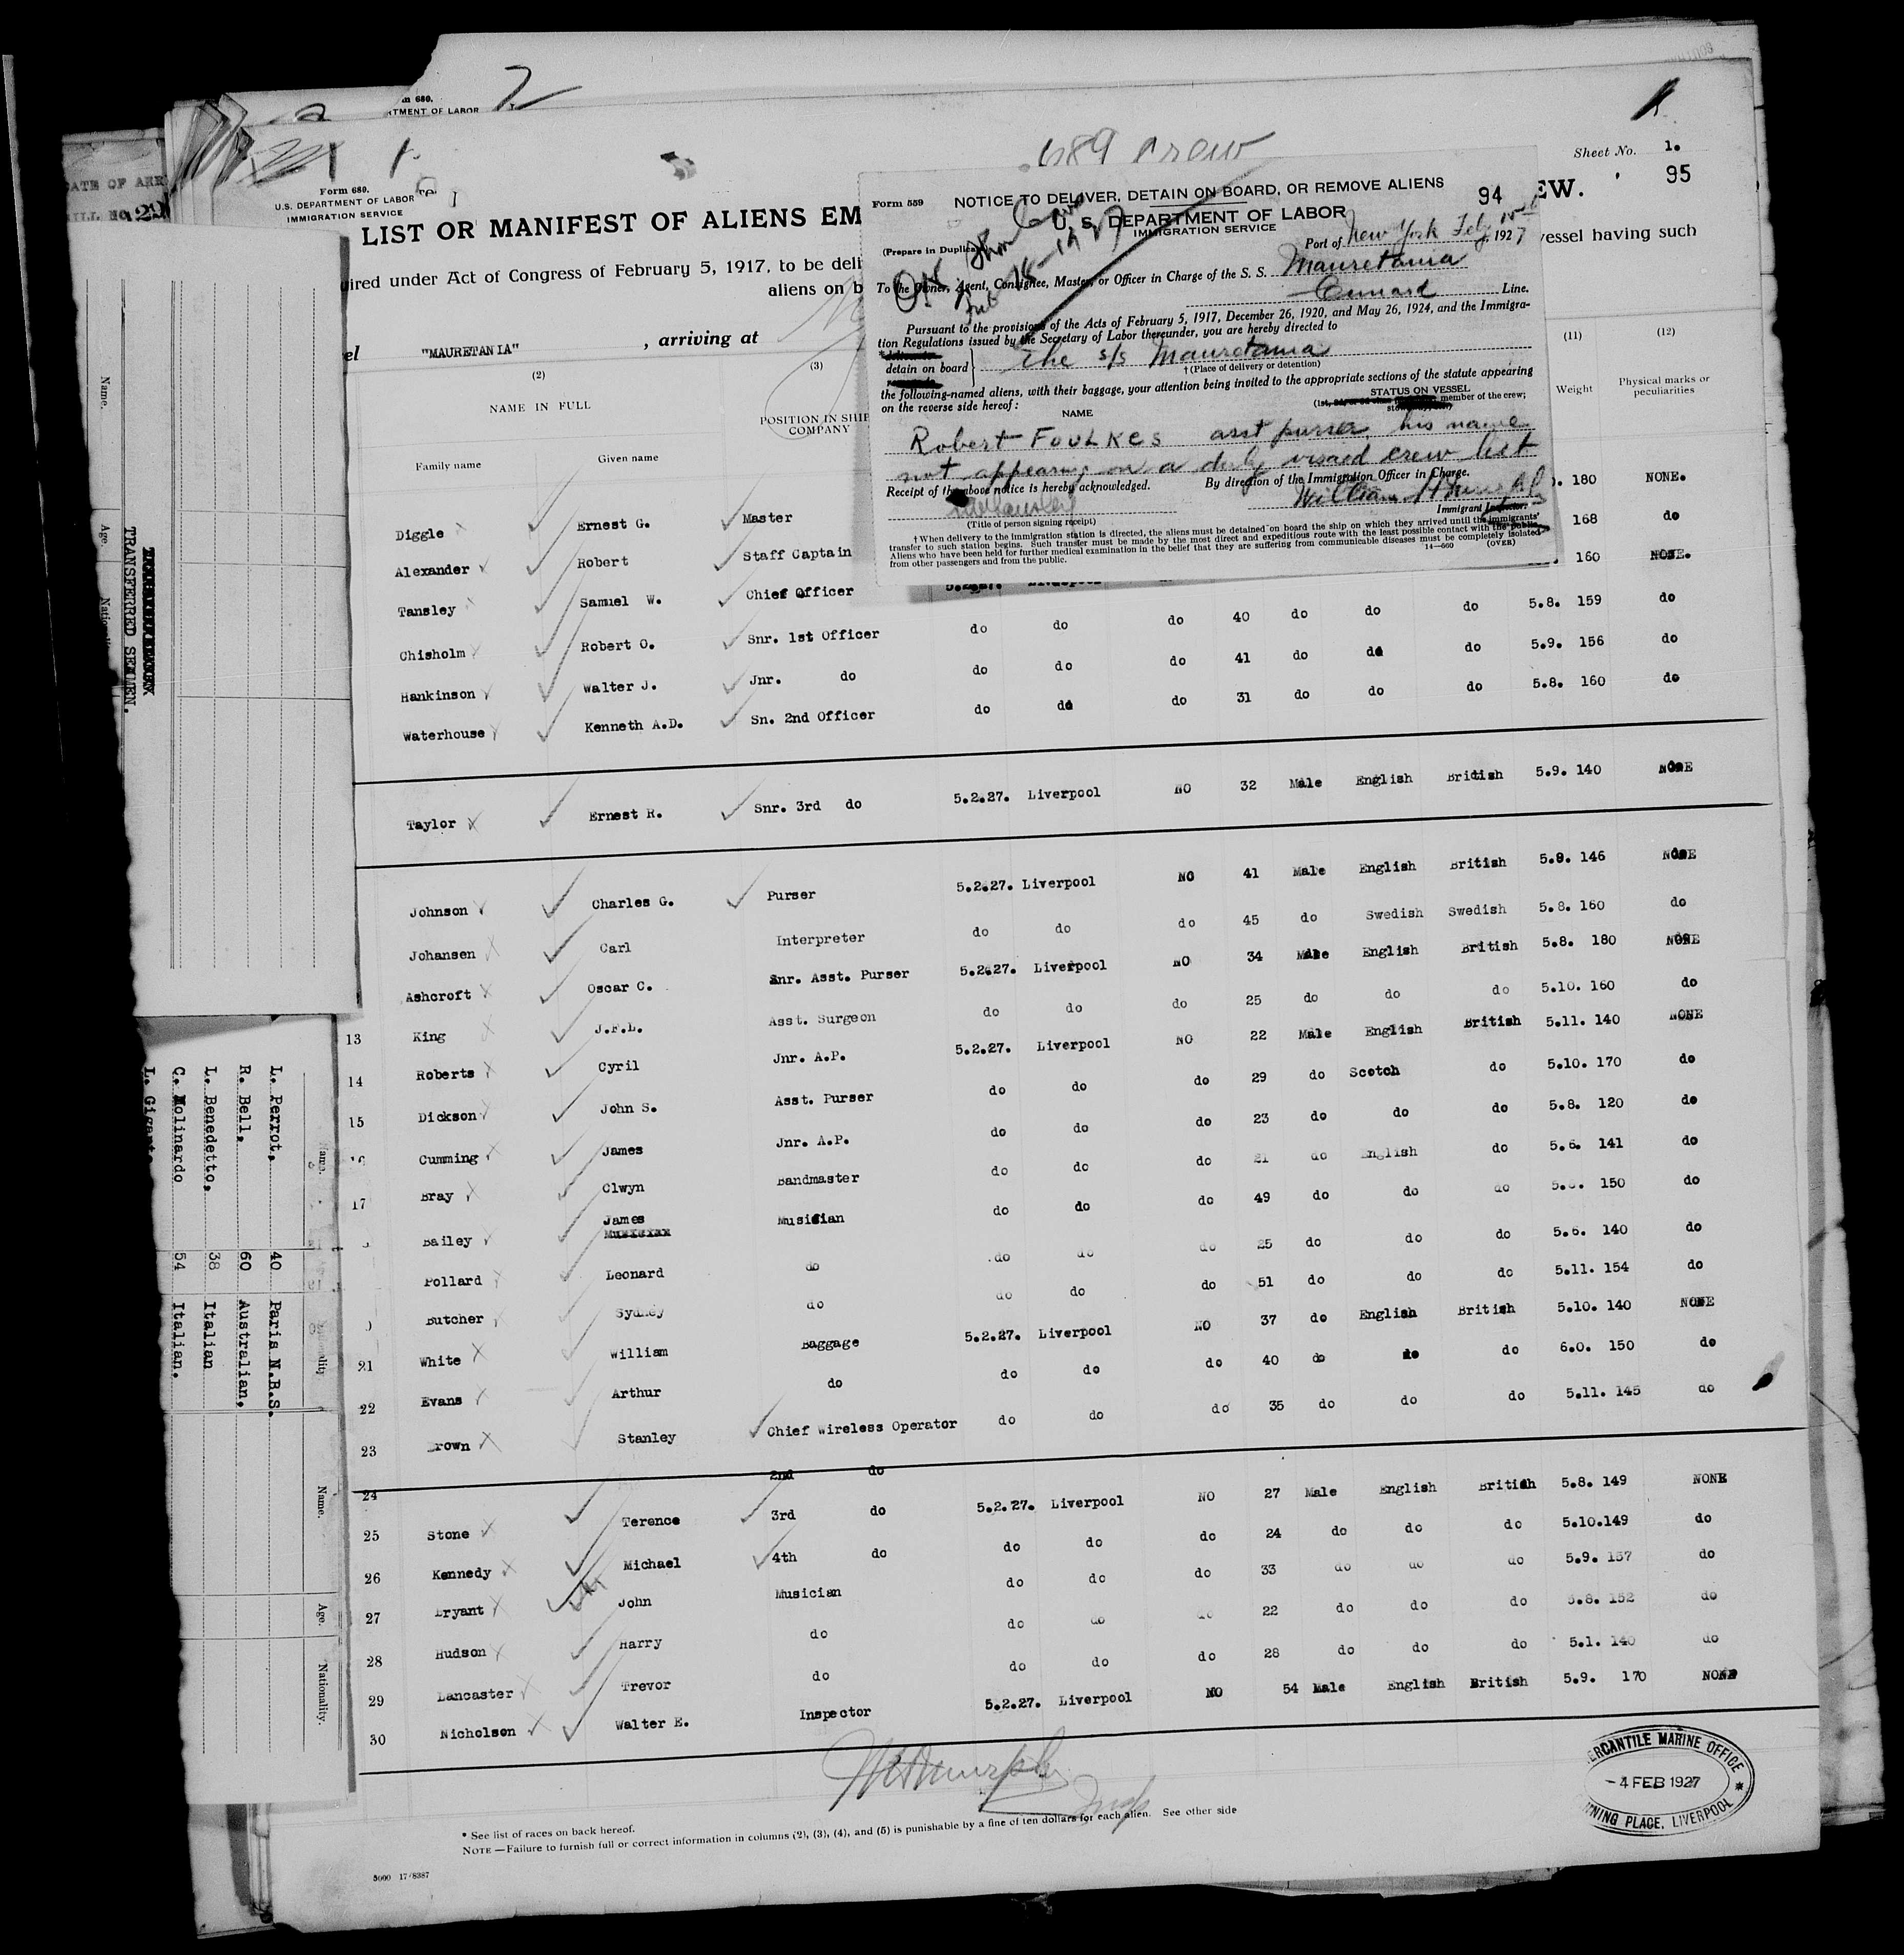 689 crew
Sheet No. 1.
95
Form 680.
TMENT OF LABOR
Form 680.
U. S. DEPARTMENT OF LABOR
IMMIGRATION SERVICE
LIST OR MANIFEST OF ALIENS EM
EW.
uired under Act of Congress of February 5, 1917, to be deli
vessel having such
aliens on b
el "MAURETANIA" , arriving at
Form 559
NOTICE TO DELIVER, DETAIN ON BOARD, OR REMOVE ALIENS
94
U. S. DEPARTMENT OF LABOR
IMMIGRATION SERVICE
(Prepare in Duplicate)
Port of New York Feb , 1927
To the Owner, Agent, Consignee, Master, or Officer in Charge of the S. S. Mauretania
Cunard Line.
Pursuant to the provisions of the Acts of February 5, 1917, December 26, 1920, and May 26, 1924, and the Immigra-
tion Regulations issued by the Secretary of Labor thereunder, you are hereby directed to
detain on board } the s/s Mauretania
† (Place of delivery or detention)
the following-named aliens, with their baggage, your attention being invited to the appropriate sections of the statute appearing
on the reverse side hereof:
NAME
STATUS ON VESSEL
member of the crew;
Robert Foulkes asst purser, his name
not appearing on a duly visaed crew list
Receipt of the above notice is hereby acknowledged.
By direction of the Immigration Officer in Charge.
William
Immigrant Inspector.
(Title of person signing receipt)
† When delivery to the immigration station is directed, the aliens must be detained on board the ship on which they arrived until the immigrants'
transfer to such station begins. Such transfer must be made by the most direct and expeditious route with the least possible contact with the public.
Aliens who have been held for further medical examination in the belief that they are suffering from communicable diseases must be completely isolated
from other passengers and from the public.
14—660 (OVER)
(2) (3) (11) (12)
NAME IN FULL
POSITION IN SHIP
COMPANY
Weight
Physical marks or
peculiarities
Family name Given name
Diggle Ernest G. Master 180 NONE.
Alexander Robert Staff Captain 168 do
Tansley Samuel W. Chief Officer 160 NONE.
Chisholm Robert O. Snr. 1st Officer do do do 40 do do do 5.8. 159 do
Hankinson Walter J. Jnr. do do do do 41 do do do 5.9. 156 do
Waterhouse Kenneth A.D. Sn. 2nd Officer do do do 31 do do do 5.8. 160 do
Taylor Ernest R. Snr. 3rd do 5.2.27. Liverpool NO 32 Male English British 5.9. 140 NONE
Johnson Charles G. Purser 5.2.27. Liverpool NO 41 Male English British 5.9. 146 NONE
Johansen Carl Interpreter do do do 45 do Swedish Swedish 5.8. 160 do
Ashcroft Oscar C. Snr. Asst. Purser 5.2.27. Liverpool NO 34 Male English British 5.8. 180 NONE
13 King J.F.L. Asst. Surgeon do do do 25 do do do 5.10. 160 do
14 Roberts Cyril Jnr. A.P. 5.2.27. Liverpool NO 22 Male English British 5.11. 140 NONE
15 Dickson John S. Asst. Purser do do do 29 do Scotch do 5.10. 170 do
16 Cumming James Jnr. A.P. do do do 23 do do do 5.8. 120 do
17 Bray Clwyn Bandmaster do do do 21 do English do 5.6. 141 do
Bailey James Musician do do do 49 do do do 150 do
Pollard Leonard do do do do 25 do do do 5.6. 140 do
Butcher Sydney do do do do 51 do do do 5.11. 154 do
21 White William Baggage 5.2.27. Liverpool NO 37 do English British 5.10. 140 NONE
22 Evans Arthur do do do do 40 do do do 6.0. 150 do
23 Brown Stanley Chief Wireless Operator do do do 35 do do do 5.11. 145 do
24 2nd do
25 Stone Terence 3rd do 5.2.27. Liverpool NO 27 Male English British 5.8. 149 NONE
26 Kennedy Michael 4th do do do do 24 do do do 5.10. 149 do
27 Bryant John Musician do do do 33 do do do 5.9. 157 do
28 Hudson Harry do do do do 22 do do do 5.8. 152 do
29 Lancaster Trevor do do do do 28 do do do 5.1. 140 do
30 Nicholson Walter E. Inspector 5.2.27. Liverpool NO 54 Male English British 5.9. 170 NONE
* See list of races on back hereof.
NOTE—Failure to furnish full or correct information in columns (2), (3), (4), and (5) is punishable by a fine of ten dollars for each alien. See other side
5000 17/8387
ERCANTILE MARINE OFFICE
-4 FEB 1927
NING PLACE, LIVERPOOL
TRANSFERRED SEAMEN.
Name. Age.
Name. Age. Nationality.
L. Perrot, 40 Paris N.B.S.
R. Bell, 60 Australian.
L. Benedetto, 38 Italian
C. Molinardo 54 Italian.